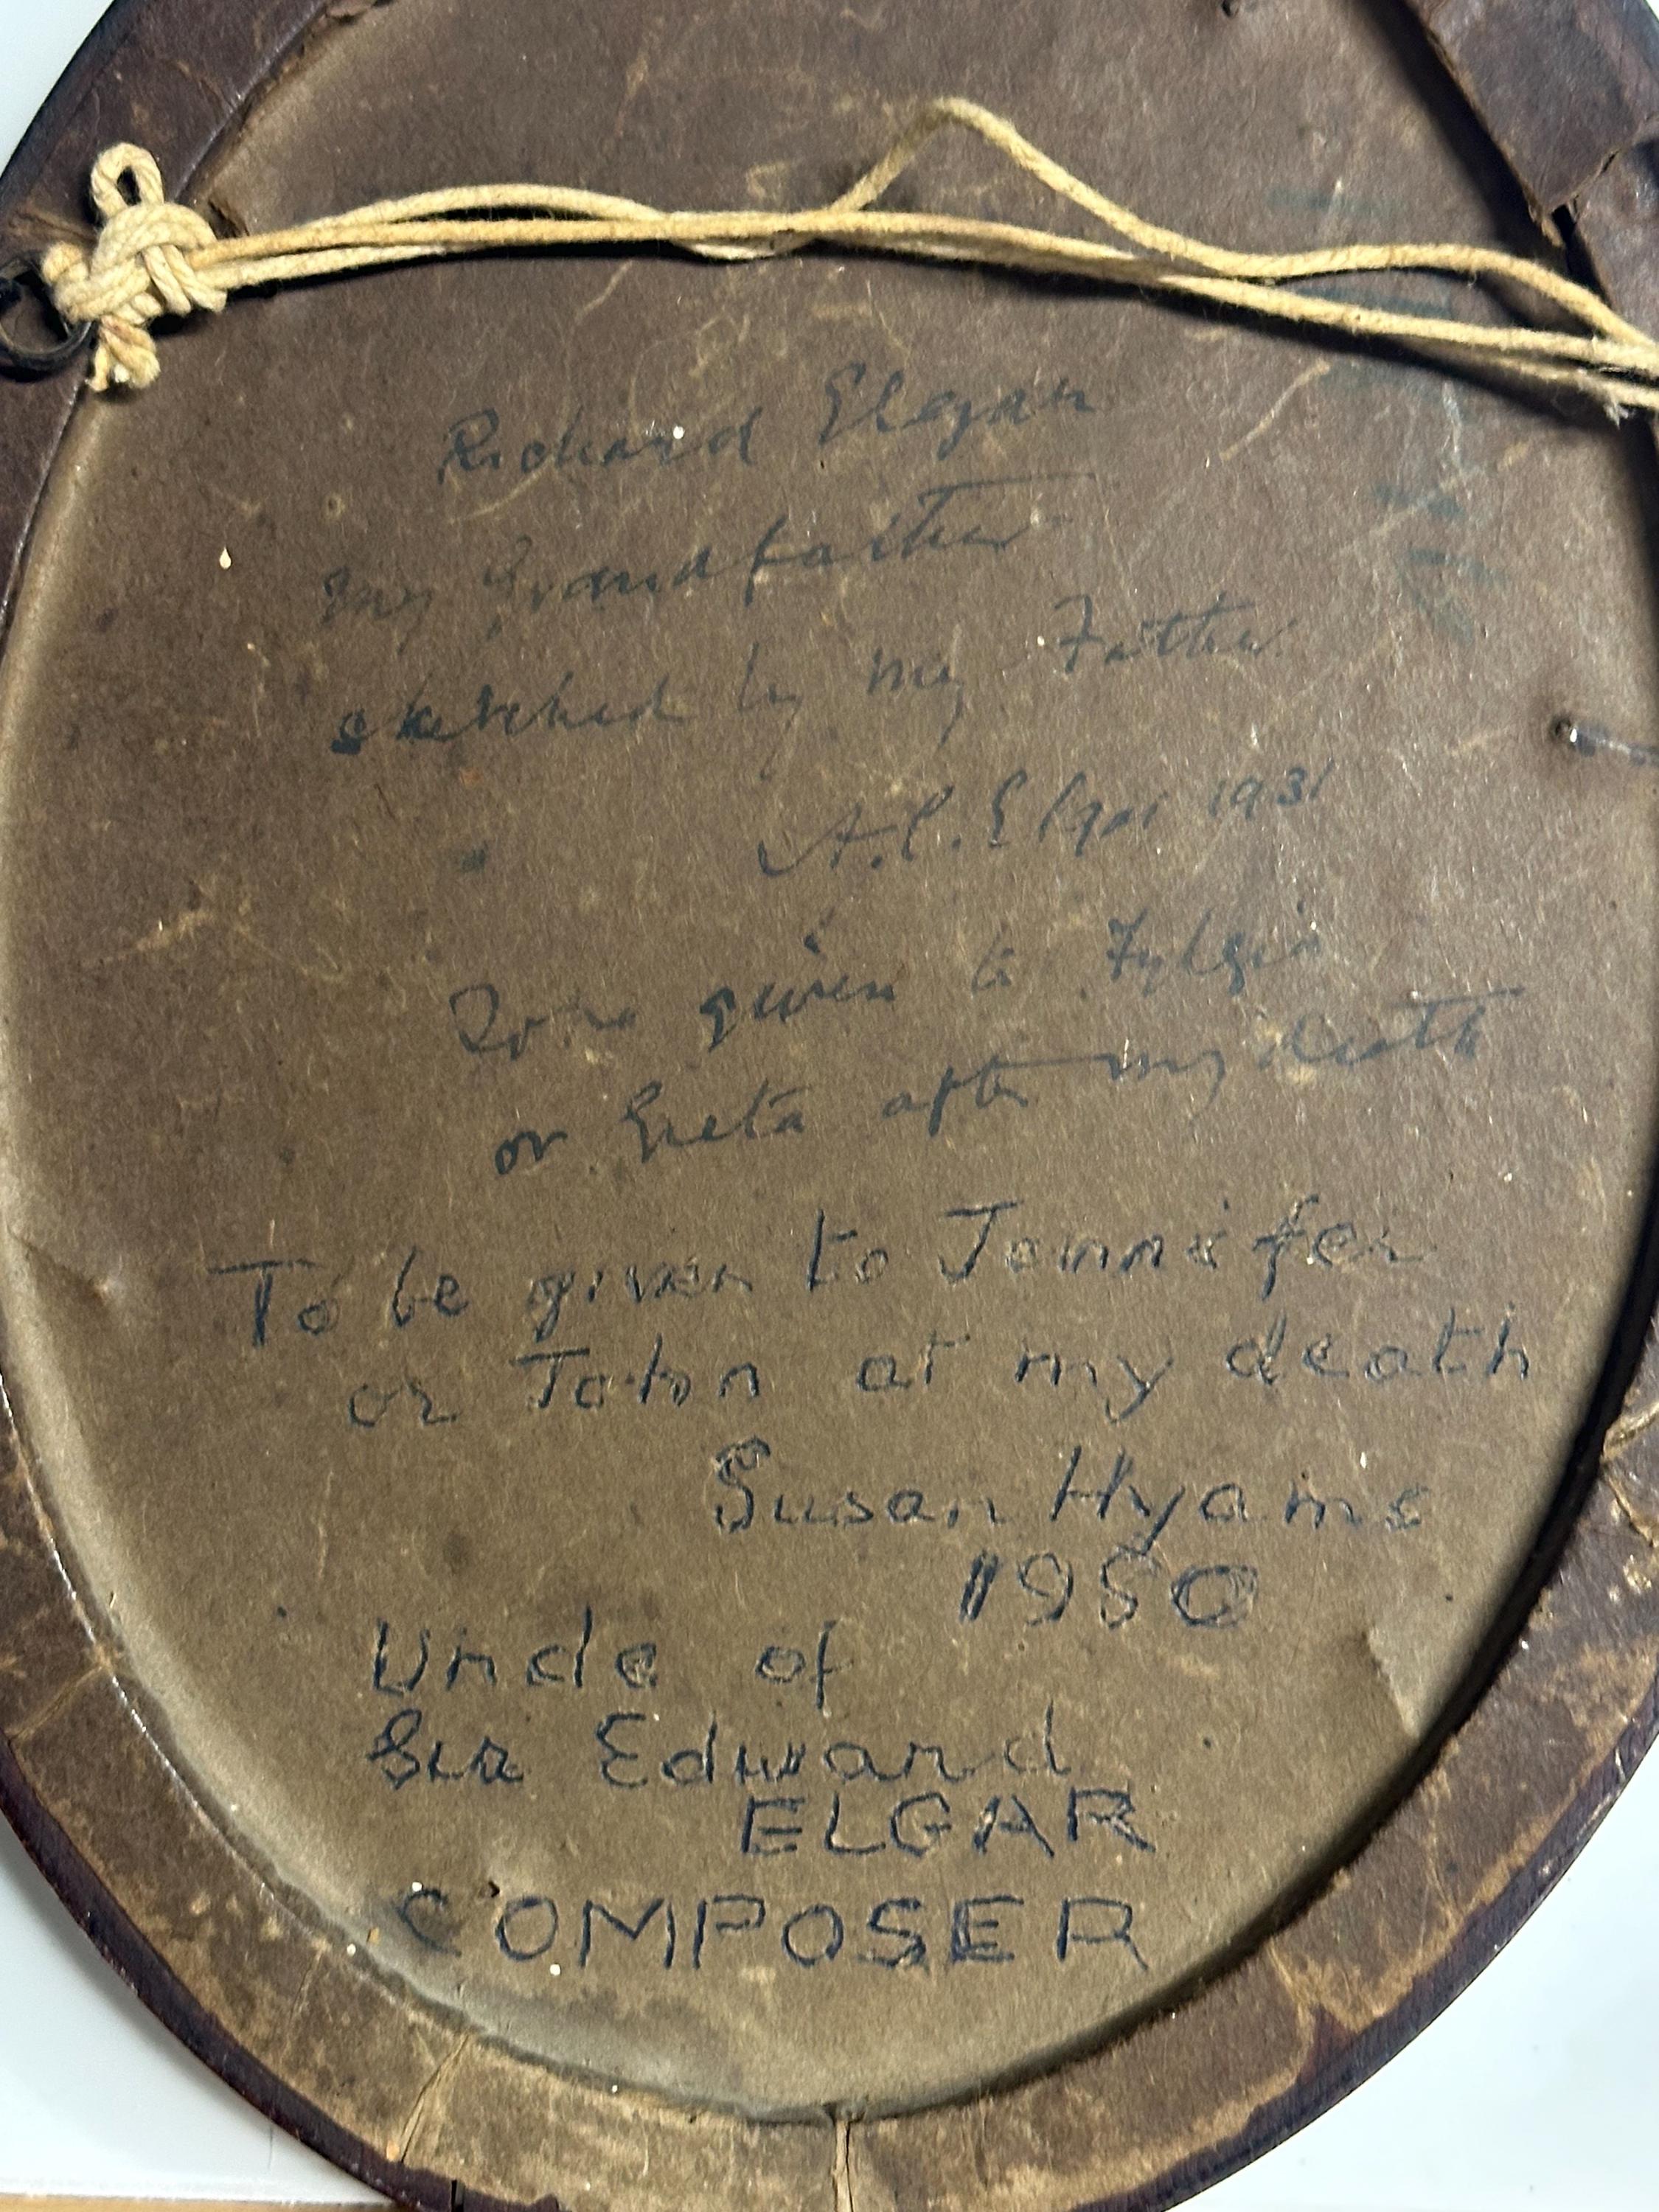 Richard Elgar
My Grandfather
sketched by my Father
A.C. Elgar 1931
To be given to
or Greta after my death
To be given to Jennifer
or John at my death
Susan Hyams
1950
Uncle of
Sir Edward
ELGAR
COMPOSER